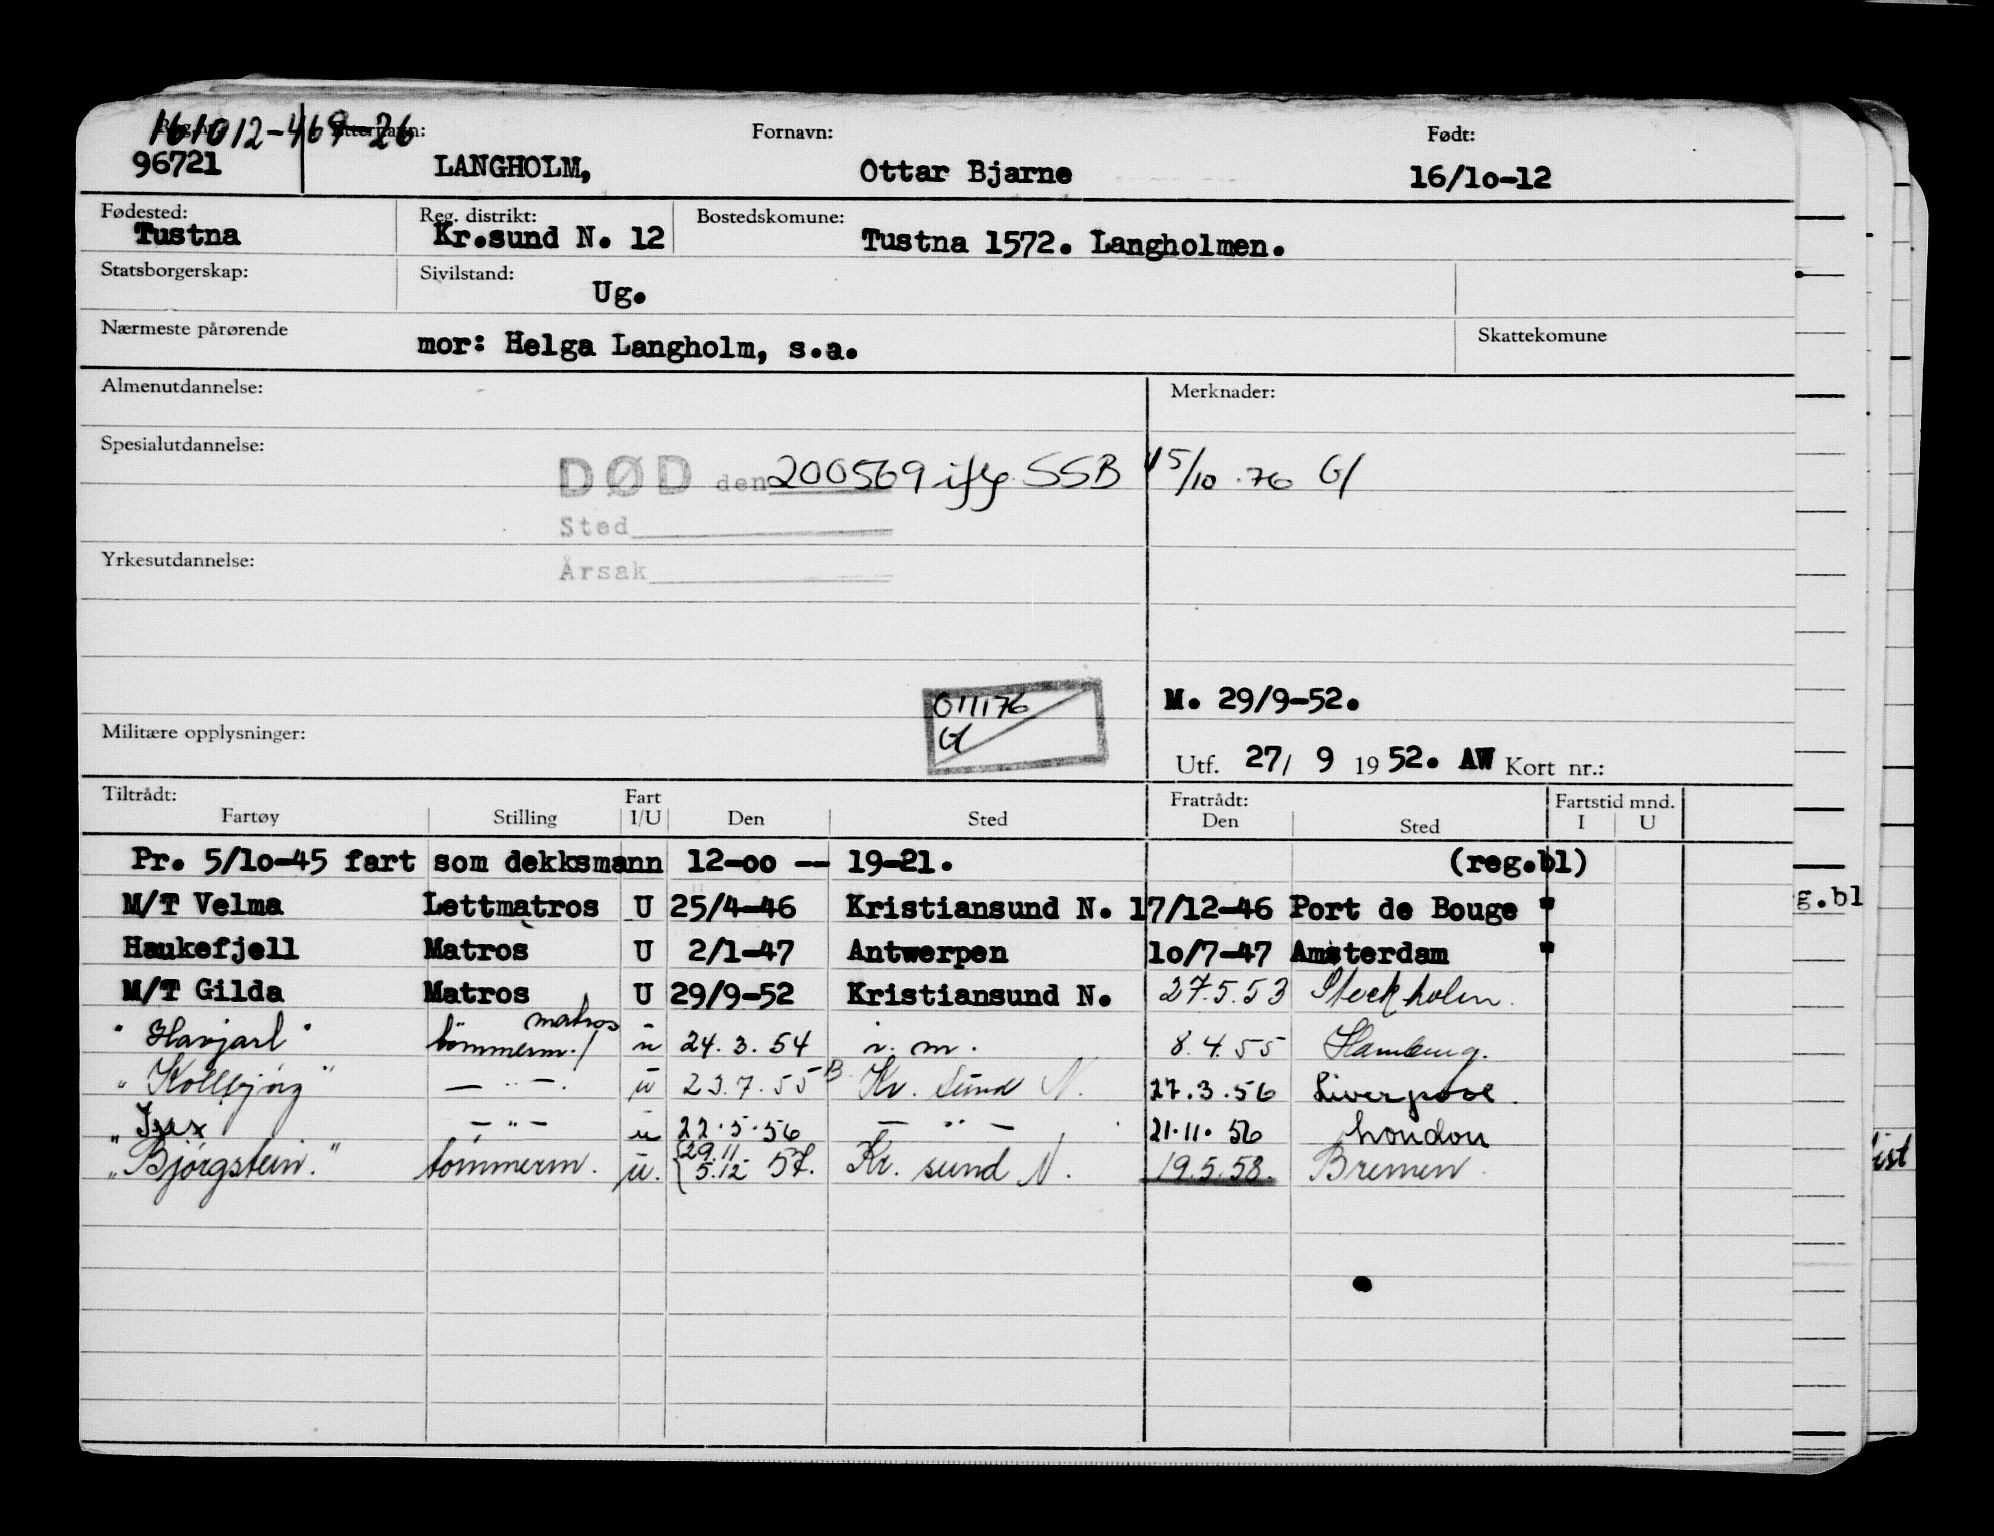 161012-469-26
Etternavn: Fornavn: Født:
96721 LANGHOLM, Ottar Bjarne 16/1o-12
Fødested: Reg. distrikt: Bostedskomune:
Tustna Kr.sund N. 12 Tustna 1572. Langholmen.
Statsborgerskap: Sivilstand:
Ug.
Nærmeste pårørende Skattekomune
mor: Helga Langholm, s.a.
Almenutdannelse: Merknader:
Spesialutdannelse:
DØD den 200569 iflg. SSB 15/10.76 Gl
Sted
Yrkesutdannelse:
Årsak
011176
Gl
M. 29/9-52.
Militære opplysninger:
Utf. 27/ 9 1952. AW Kort nr.:
Tiltrådt: Fart Fratrådt: Fartstid mnd.
Fartøy Stilling I/U Den Sted Den Sted I U
Pr. 5/1o-45 fart som dekksmann 12-oo -- 19-21. (reg.bl)
M/T Velma Lettmatros U 25/4-46 Kristiansund N. 17/12-46 Port de Bouge "
g.bl
Haukefjell Matros U 2/1-47 Antwerpen 1o/7-47 Amsterdam "
M/T Gilda Matros U 29/9-52 Kristiansund N. 27.5.53 Stockholm.
matros
"Havjarl" tømmerm./ u 24.3.54 n.m. 8.4.55 Hamburg.
"Kollbjørg" — " —. u 23.7.55 B Kr. sund N. 27.3.56 Liverpool.
— " — u 22.5.56 — " — 21.11.56 London
29.11
"Bjørgstein." tømmerm. u. 5.12 57. Kr. sund N. 19.5.58. Bremen.